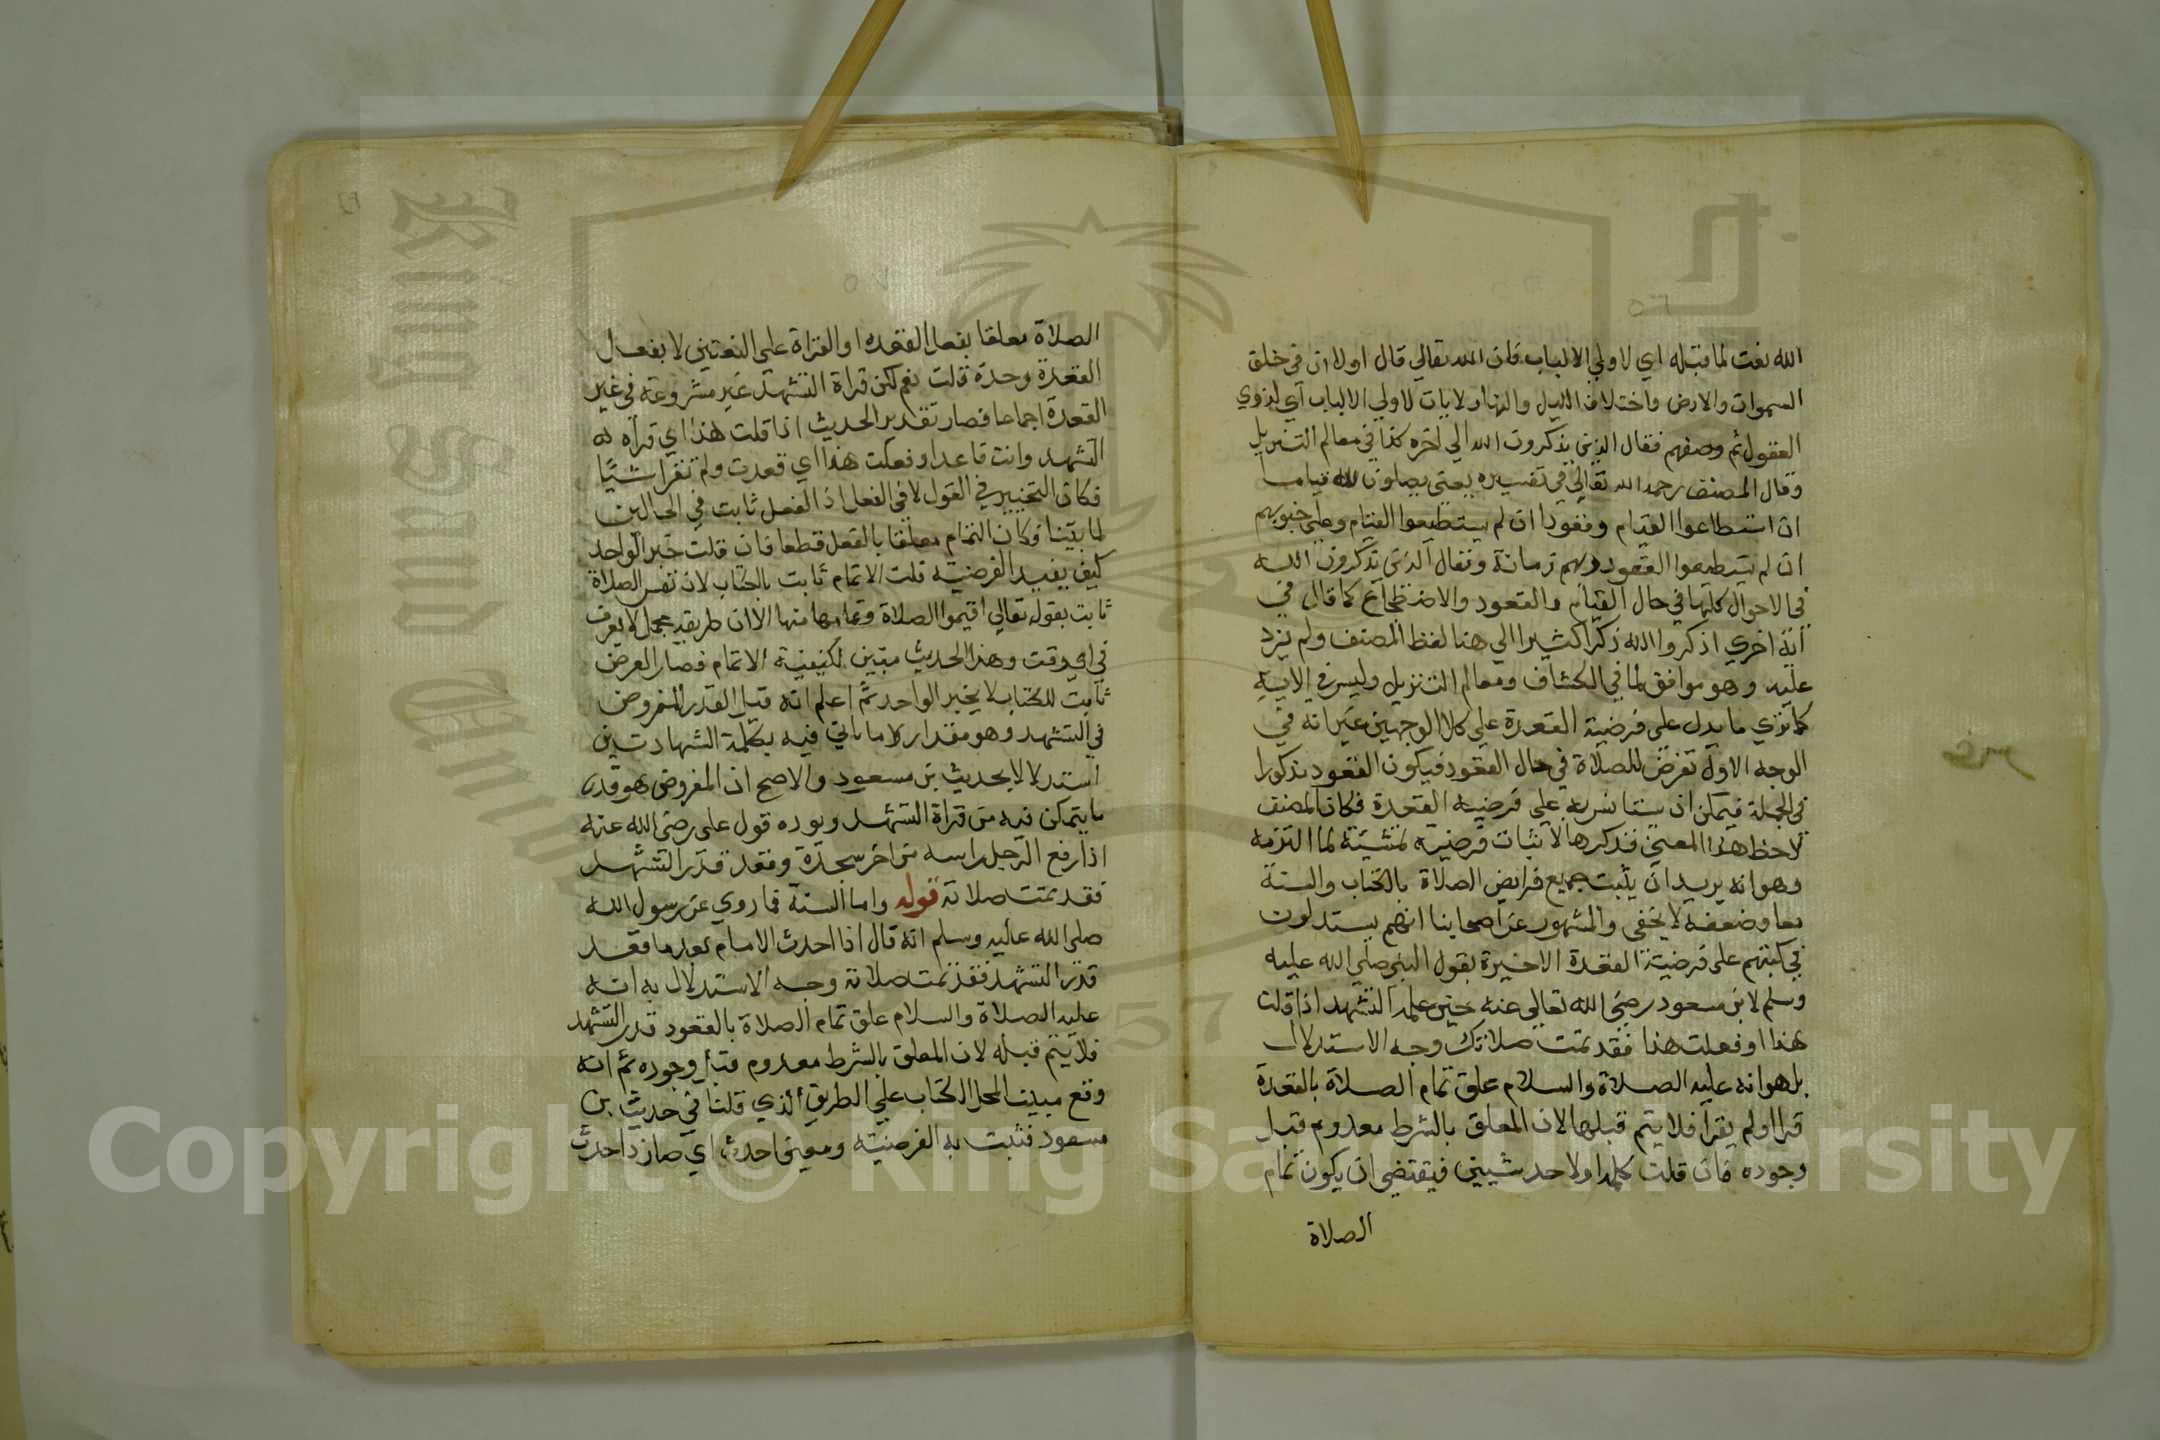 الله نعت لما قبله اي لاولي الالباب فان الله تعالي قال اولا ان في خلق
السموات والارض واختلاف الليل والنهار لايات لاولي الالباب اي لذوي
العقول ثم وصفهم فقال الذين يذكرون الله الي اخره كذا في معالم التنزيل
وقال المصنف رحمه الله تعالي في تفسيره يعني يصلون لله قياما
ان استطاعوا القيام وقعودا ان لم يستطيعوا القيام وعلي جنوبهم
ان لم يستطيعوا القعود بهم زمانة ويقال الذين يذكرون الله
في الاحوال كلها في حال القيام والقعود والاضطجاع كما قال في
اية اخري اذكروا الله ذكرا كثيرا الي هنا لفظ المصنف ولم يزد
عليه وهو موافق لما في الكشاف ومعالم التنزيل وليس في الاية
كما تري ما يدل علي فرضية القعدة علي كلا الوجهين غير انه في
الوجه الاول تعرض للصلاة في حال القعود فيكون القعود مذكورا
في الجملة فيمكن ان يستانس به علي فرضية القعدة فكان المصنف
لاحظ هذا المعني فذكرها لاثبات فرضيته تمشية لما التزمه
وهو انه يريد ان يثبت جميع فرايض الصلاة بالكتاب والسنة
معا وضعفه لا يخفي والمشهور عن اصحابنا انهم يستدلون
في كتبهم علي فرضية القعدة الاخيرة بقول النبي صلي الله عليه
وسلم لابن مسعود رضي الله تعالي عنه حين علمه التشهد اذا قلت
هذا او فعلت هذا فقد تمت صلاتك وجه الاستدلال
به هو انه عليه الصلاة والسلام علق تمام الصلاة بالقعدة
قرا اولم يقرا فلا يتم قبلها لان المعلق بالشرط معدوم قبل
وجوده فان قلت كلمة او لاحد شيين فيقتضي ان يكون تمام
الصلاة
الصلاة معلقا بفعل القعدة او القراة علي التعيين لا بفعل
القعدة وحدة قلت نعم لكن قراة التشهد غير مشروعة في غير
القعدة اجماعا فصار تقدير الحديث اذا قلت هذا اي قراه
التشهد وانت قاعد او فعلت هذا اي قعدت ولم تقرا شيئا
فكان التخيير في القول لا في الفعل اذ الفعل ثابت في الحالين
لما بينا فكان التمام معلقا بالفعل قطعا فان قلت خبر الواحد
كيف يفيد الفرضية قلت الاتمام ثابت بالكتاب لان نفس الصلاة
ثابت بقوله تعالي اقيموا الصلاة وتمامها منها الا ان طريقه مجمل لا يعرف
في اي وقت وهذا الحديث مبين لكيفية الاتمام فصار الفرض
ثابت للكتاب لا بخبر الواحد ثم اعلم انه قيل القدر المفروض
في التشهد وهو مقدار لا ما ياتي فيه بكلمة الشهادتين
استدلالا بحديث بن مسعود والاصح ان المفروض هو قدر
ما يتمكن فيه من قراة التشهد ويوده قول علي رضي الله عنه
اذا رفع الرجل راسه من اخر سجدة وقعد قدر التشهد
فقد تمت صلاته قوله واما السنة فما روي عن رسول الله
صلي الله عليه وسلم انه قال اذا احدث الامام بعد ما قعد
قدر التشهد فقد تمت صلاته وجه الاستدلال به انه
عليه الصلاة والسلام علق تمام الصلاة بالقعود قدر التشهد
فلا يتم قبله لان المعلق بالشرط معدوم قبل وجوده ثم انه
وقع مبينا لمجمل الكتاب علي الطريق الذي قلنا في حديث بن
مسعود فثبت به الفرضية ومعني احدث اي صار ذا حدث
Copyright © King Saud University
King Saud University
1957